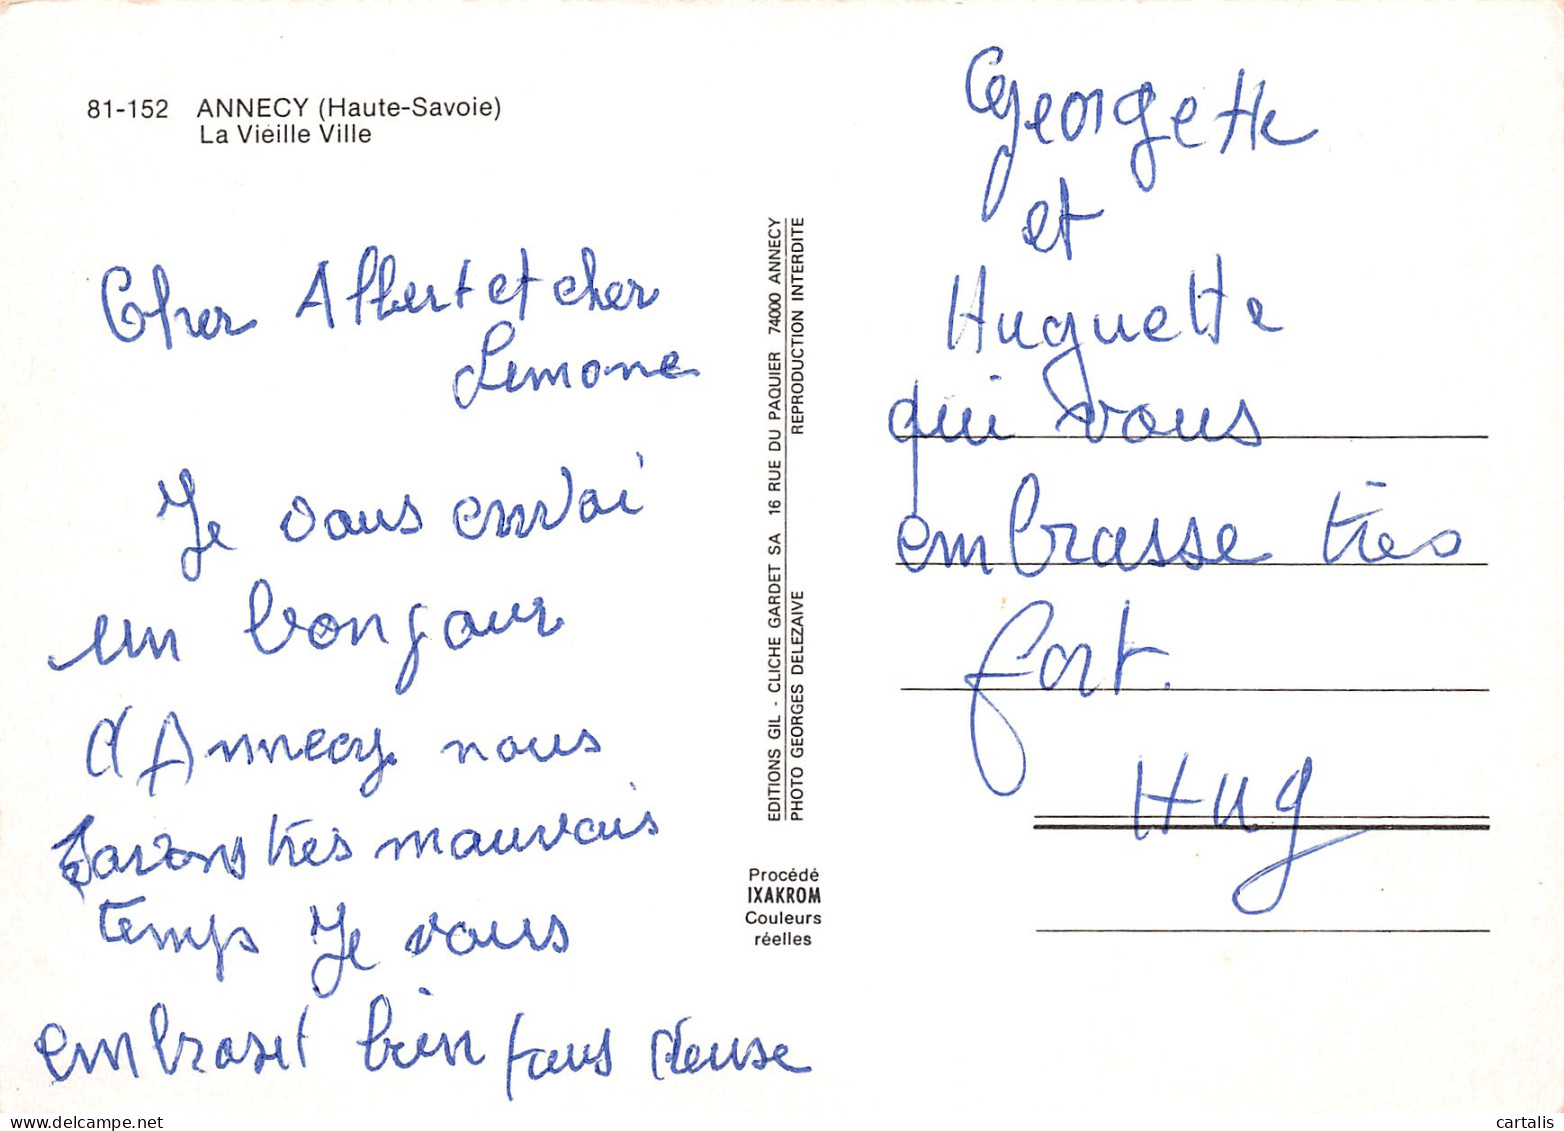 81-152 ANNECY (Haute-Savoie)
La Vieille Ville
Cher Albert et cher
Simone
Je vous envoi
un bonjour
d'Annecy nous
avons très mauvais
temps Je vous
embrasset bien tous deuse
EDITIONS GIL - CLICHE GARDET SA 16 RUE DU PAQUIER 74000 ANNECY
PHOTO GEORGES DELEZAIVE REPRODUCTION INTERDITE
Procédé
IXAKROM
Couleurs
réelles
Georgette
et
Huguette
qui vous
embrasse très
fort.
Hug
cartalis